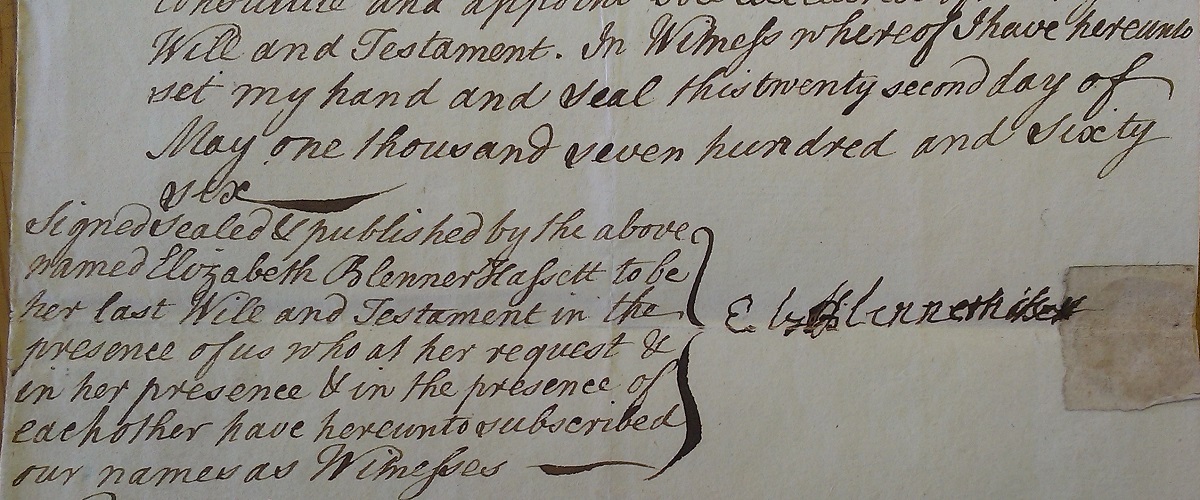 constitute and appoint
Will and Testament. In Witness whereof I have hereunto
set my hand and Seal this twenty second day of
May one thousand seven hundred and Sixty
six
Signed Sealed & published by the above
named Elizabeth BlennerHassett to be
her last Will and Testament in the
presence of us who at her request &
in her presence & in the presence of
each other have hereunto subscribed
our names as Witnesses